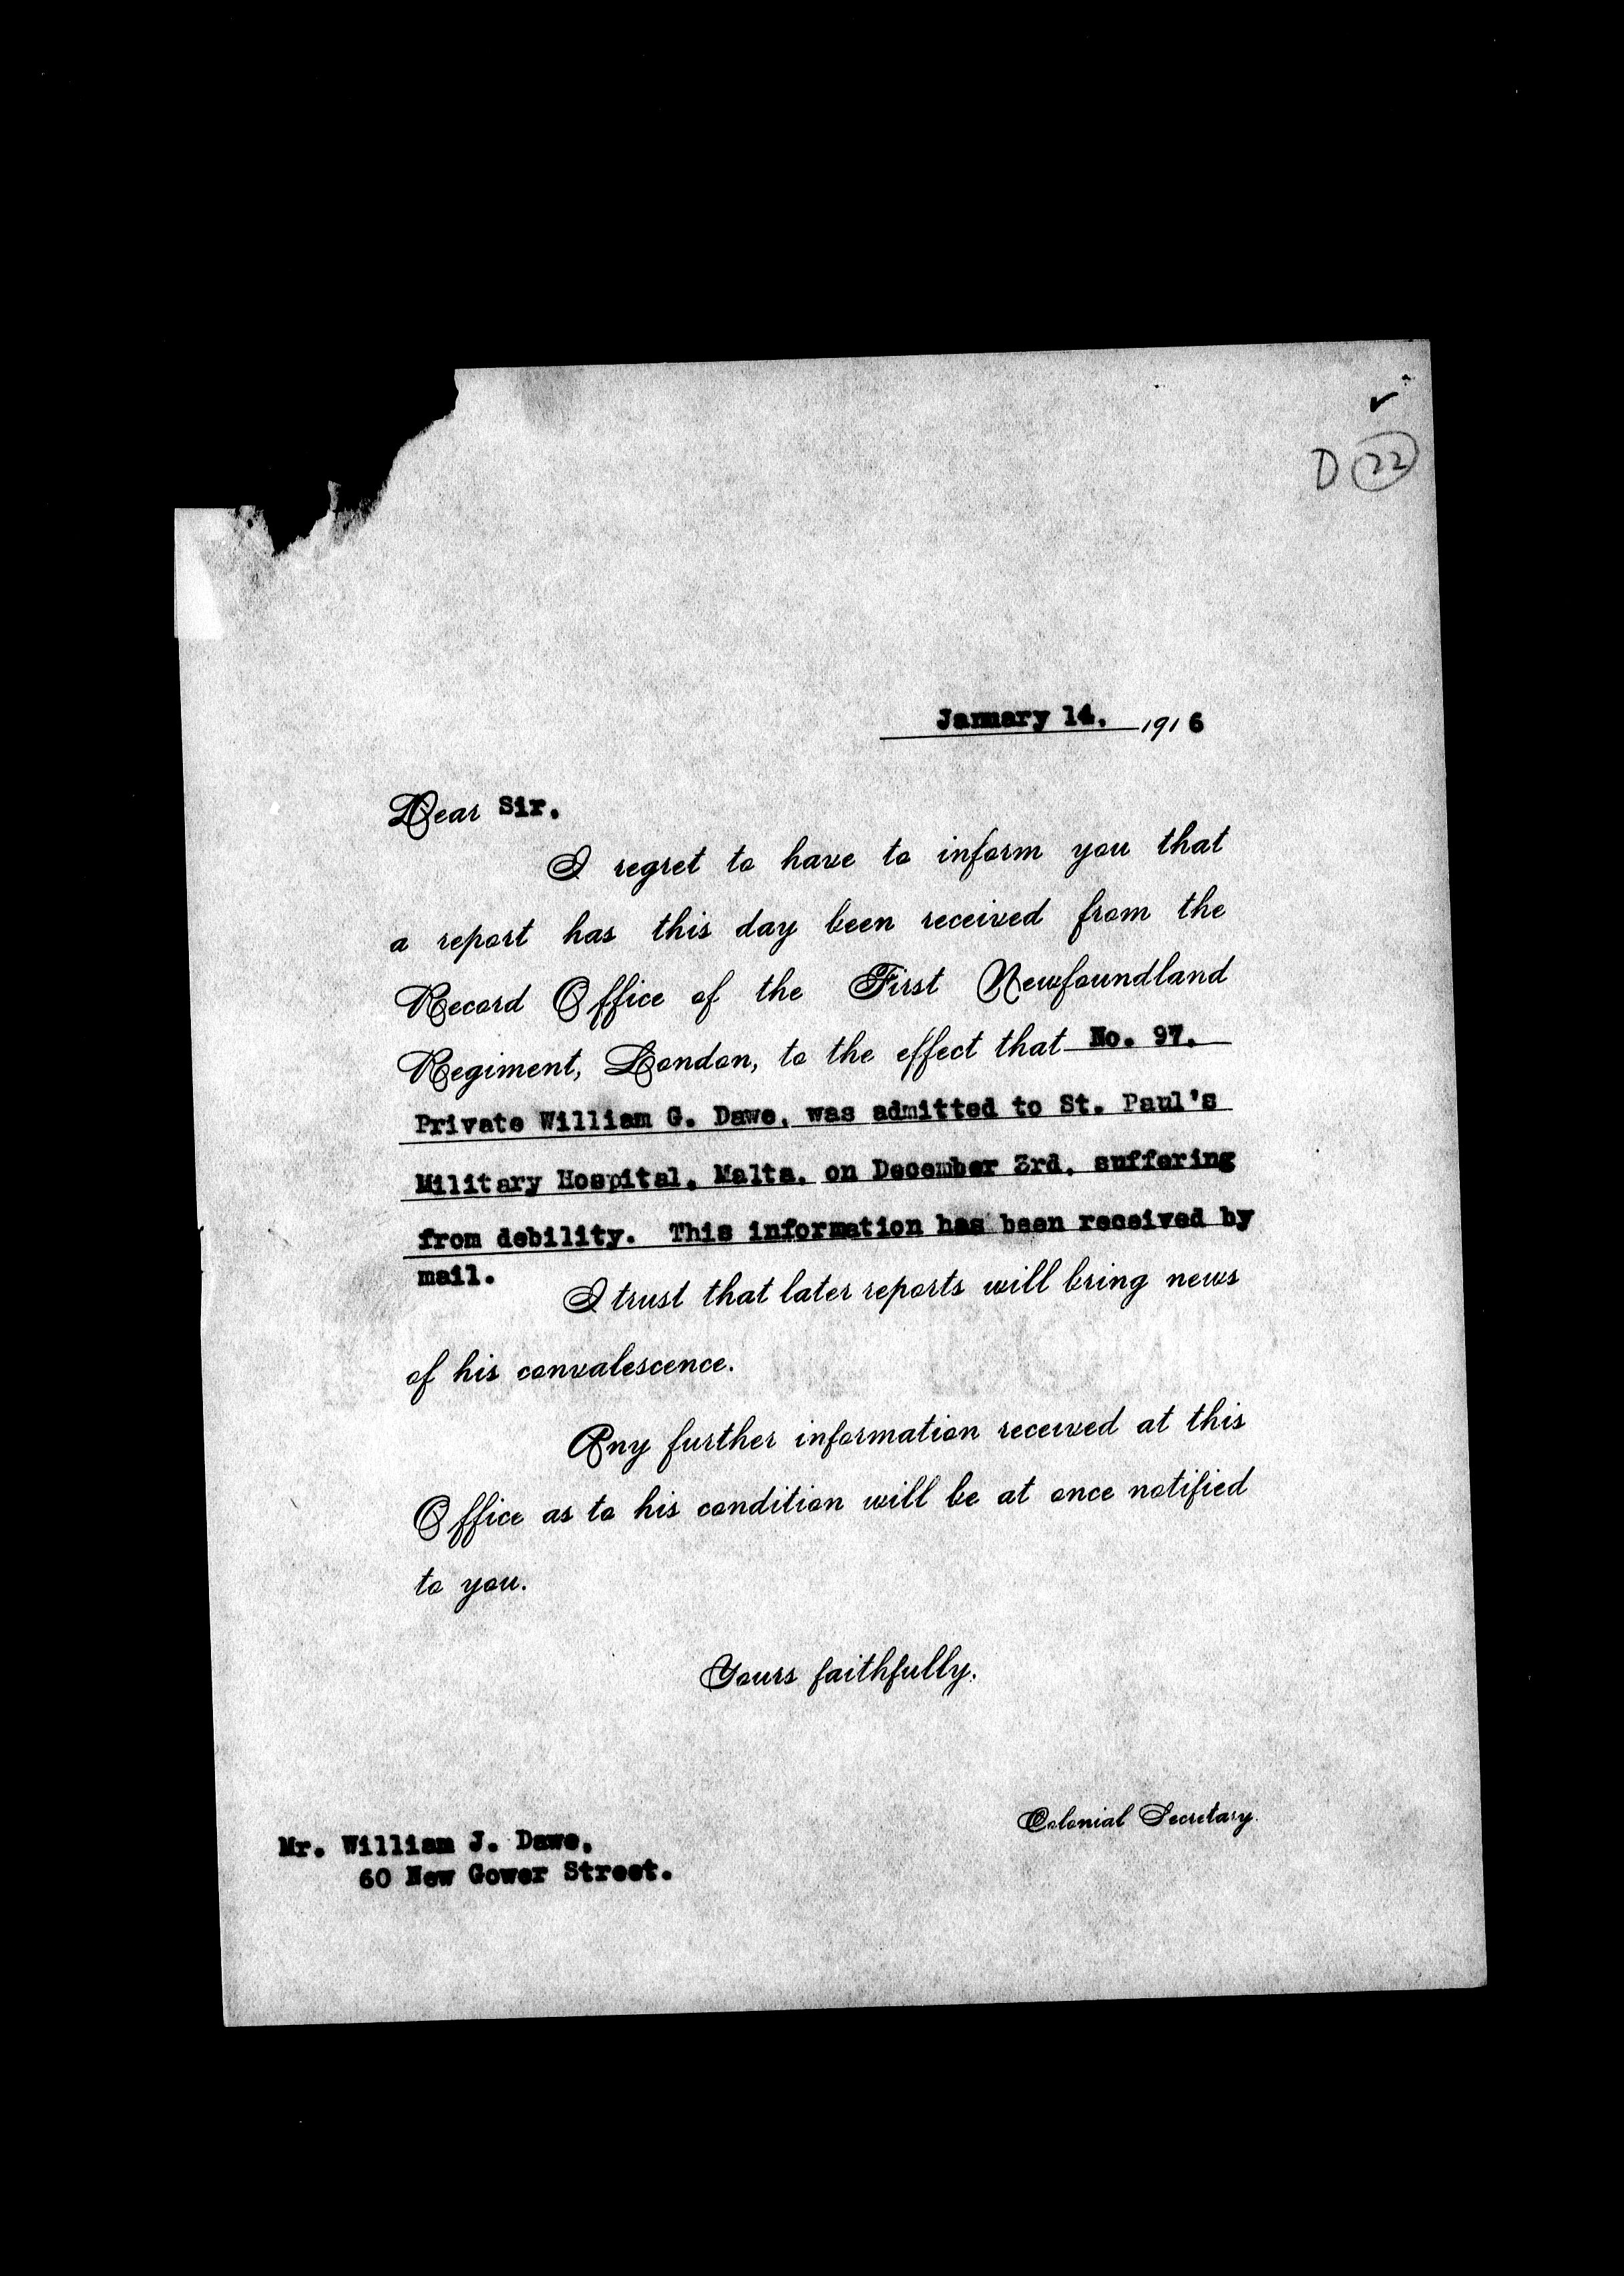 D 22
January 14, 1916
Dear Sir,
I regret to have to inform you that
a report has this day been received from the
Record Office of the First Newfoundland
Regiment, London, to the effect that No. 97,
Private William G. Dawe, was admitted to St. Paul's
Military Hospital, Malta, on December 3rd, suffering
from debility. This information has been received by
mail.
I trust that later reports will bring news
of his convalescence.
Any further information received at this
Office as to his condition will be at once notified
to you.
Yours faithfully,
Colonial Secretary.
Mr. William J. Dawe,
60 New Gower Street.